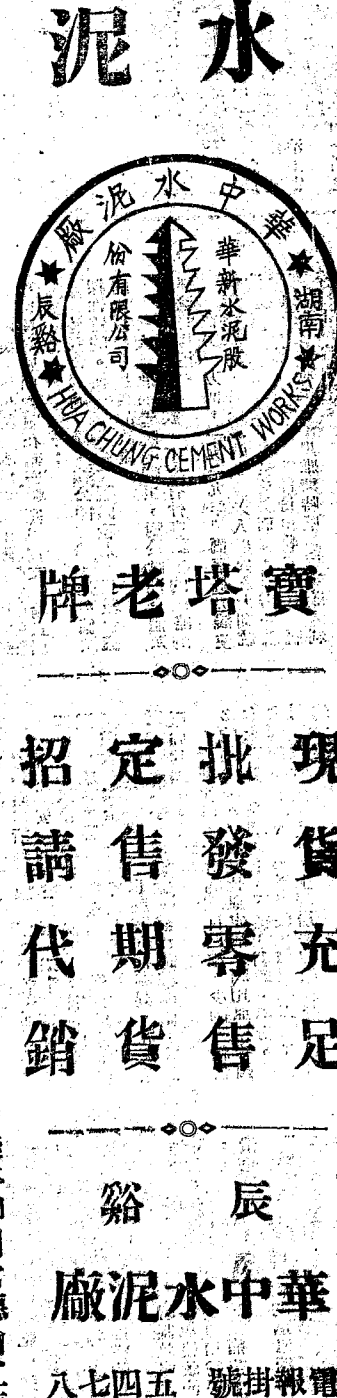 水泥
華中水泥廠
湖南
辰谿
華新水泥股
份有限公司
HUA CHUNG CEMENT WORKS
寶塔老牌
現貨充足
批發零售
定售期貨
招請代銷
辰谿
華中水泥廠
電報掛號 五四七八